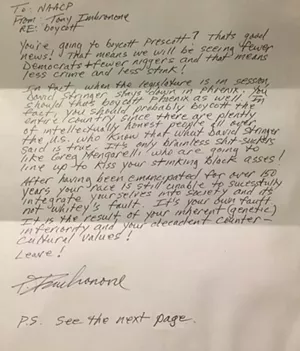 To: NAACP
From: Tony Imbronone
RE: boycott
You're going to boycott Prescott? Thats good
news! That means we will be seeing fewer
Democrats & fewer niggers and that means
less crime and less stink!
In fact, when the legislature is in session,
David Stringer stays down in Phoenix. You
should thus boycott Phoenix as well. In
fact, you should probably boycott the
entire country since there are plenty
of intellectually honest people all over
the U.S. who know that what David Stringer
said is true. It's only brainless shit-suckers
like Greg Mengarelli who are going to
line up to kiss your stinking black asses!
After having been emancipated for over 150
years your race is still unable to sucessfully
integrate yourselves into society and its
not "whitey's" fault. It's your own fault
It is the result of your inherent (genetic)
inferiority and your decadent counter-
cultural values!
Leave!
P.S. See the next page.